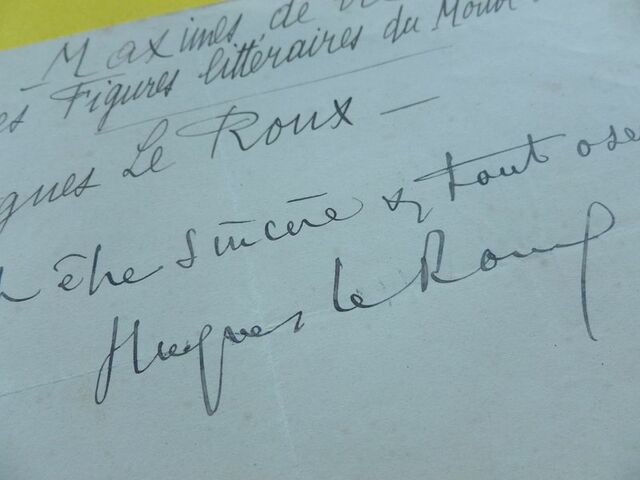 Maximes de
es Figures littéraires du
gues Le Roux —
être sincère & tout ose
Hugues le Roux